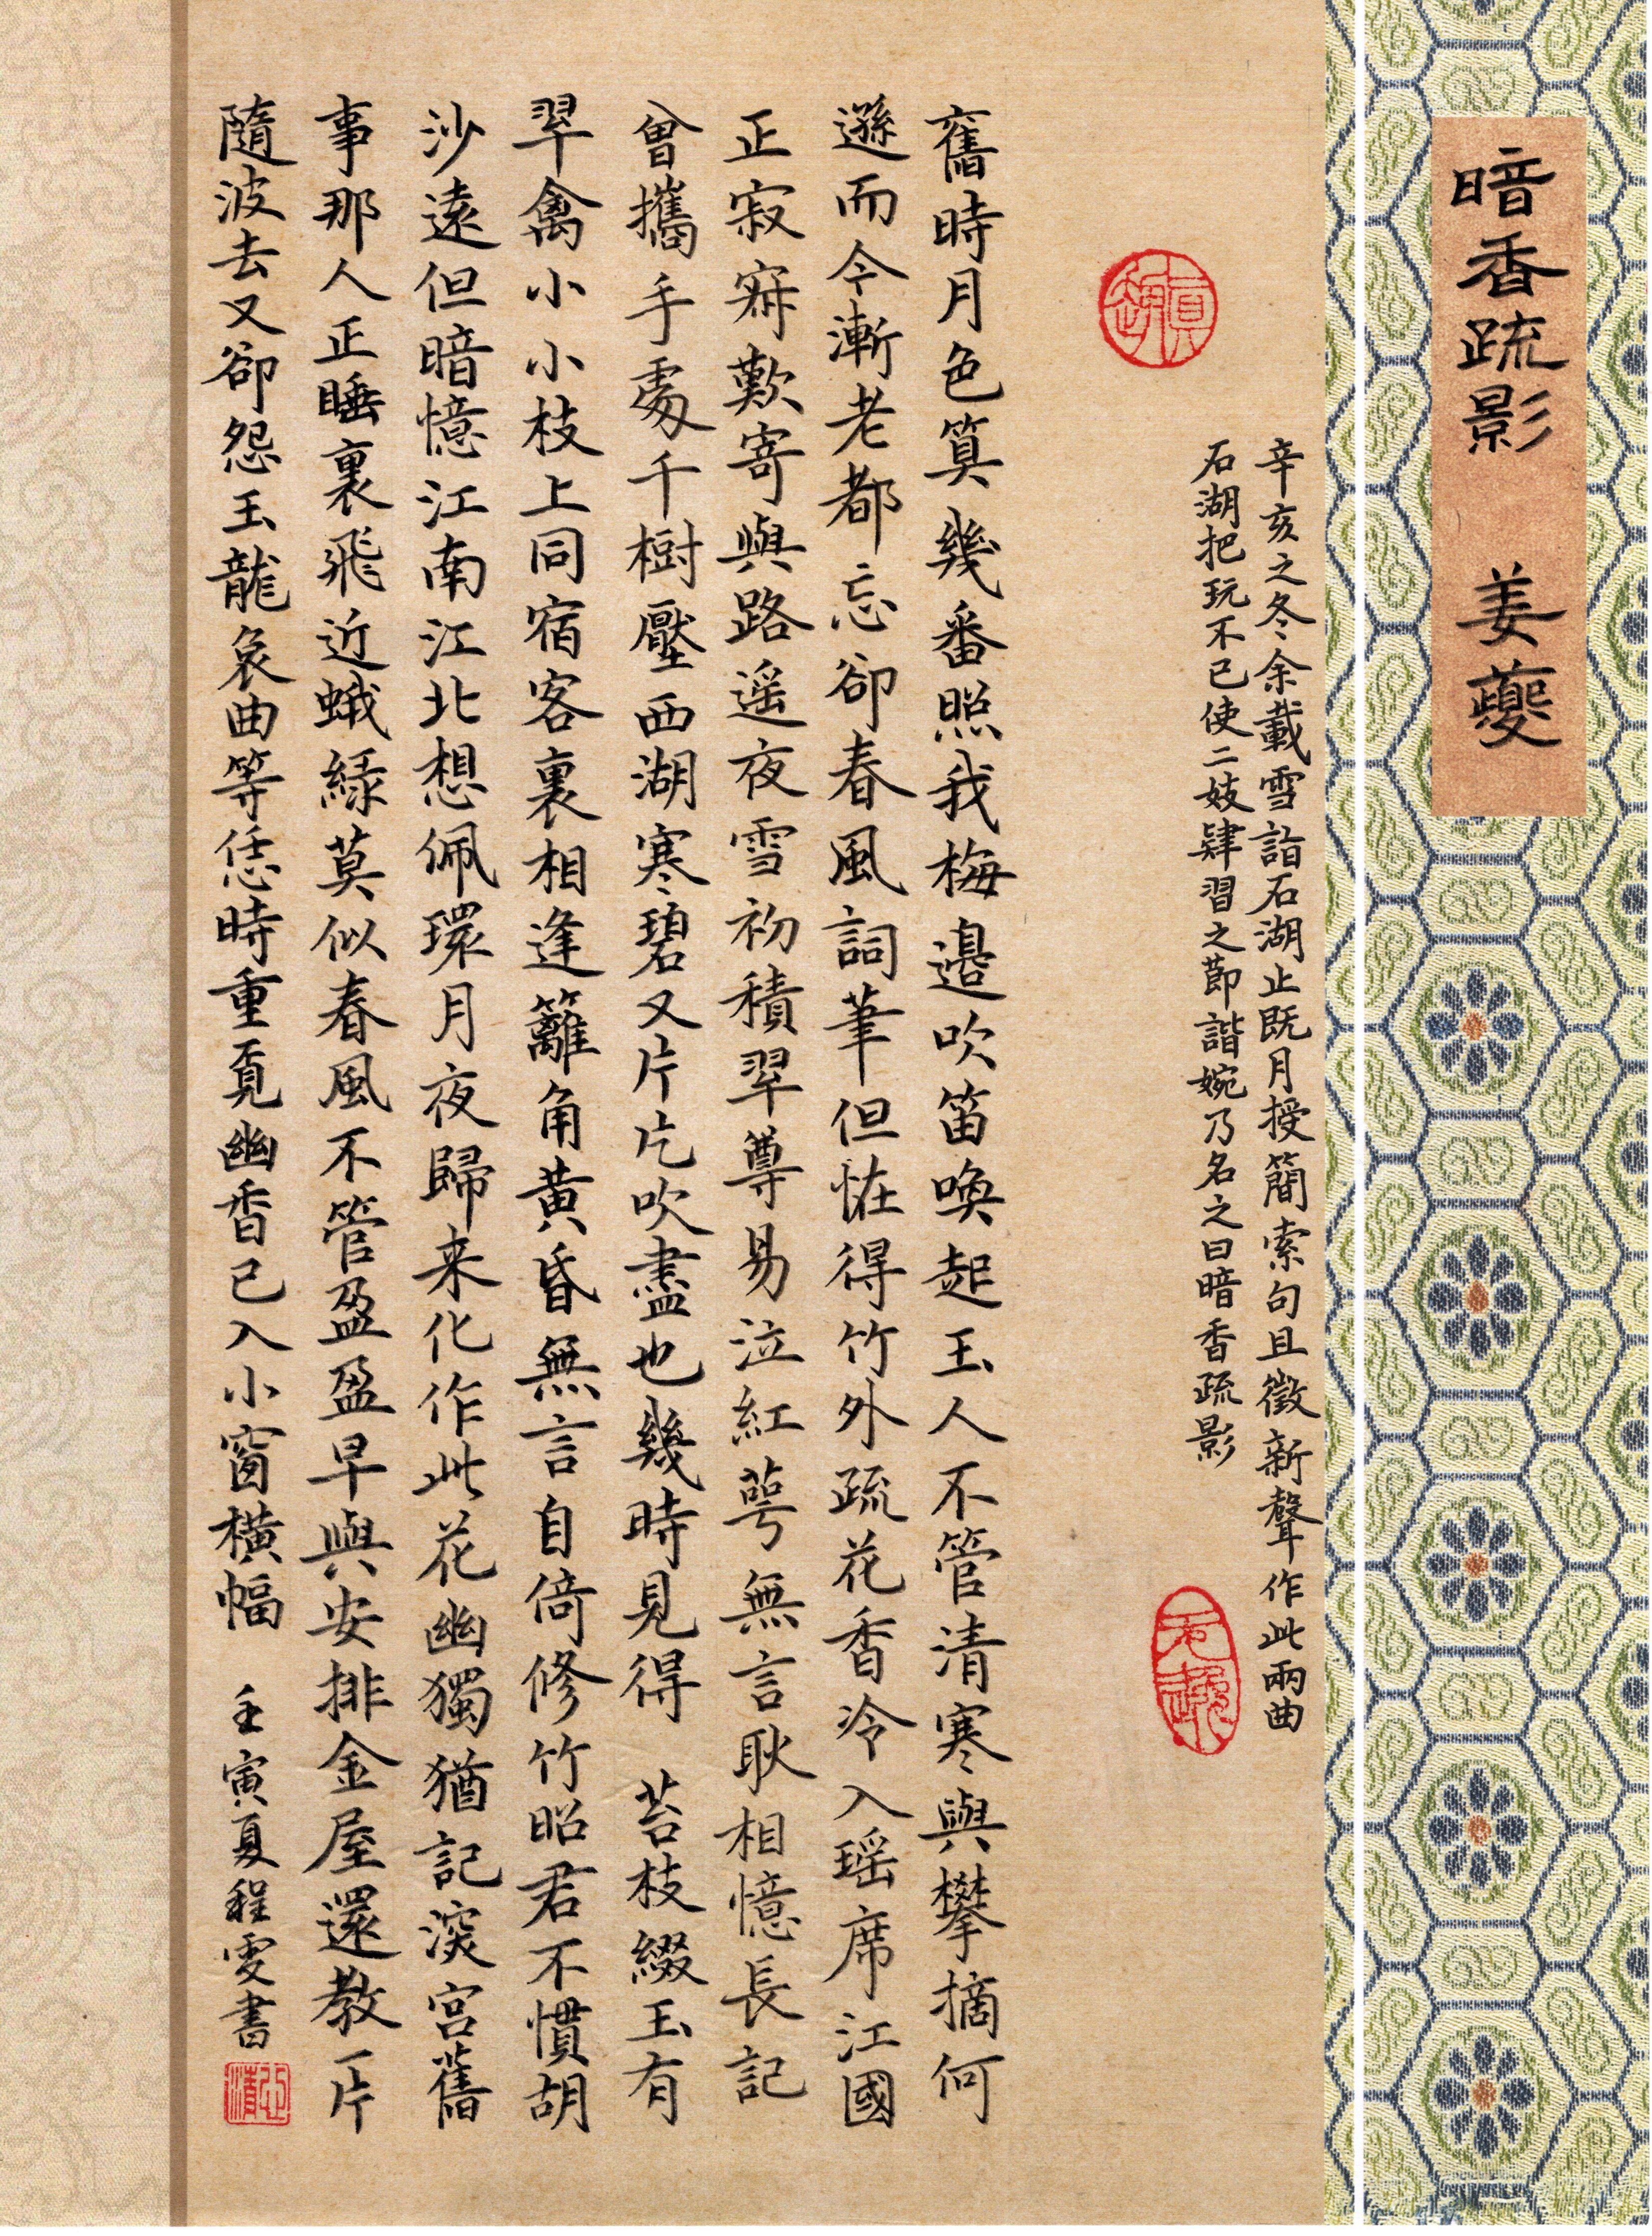 暗香疏影 姜夔
辛亥之冬余載雪詣石湖止既月授簡索句且徵新聲作此兩曲
石湖把玩不已使二妓肄習之節諧婉乃名之曰暗香疏影
舊時月色算幾番照我梅邊吹笛喚起玉人不管清寒與攀摘何
遜而今漸老都忘卻春風詞筆但怪得竹外疏花香冷入瑶席江國
正寂寂歎寄與路遥夜雪初積翠尊易泣紅萼無言耿相憶長記
曾攜手處千樹壓西湖寒碧又片片吹盡也幾時見得 苔枝綴玉有
翠禽小小枝上同宿客裏相逢籬角黄昏無言自倚修竹昭君不慣胡
沙遠但暗憶江南江北想佩環月夜歸来化作此花幽獨猶記深宫舊
事那人正睡裏飛近蛾緑莫似春風不管盈盈早與安排金屋還教一片
隨波去又卻怨玉龍哀曲等恁時重覓幽香已入小窗横幅 壬寅夏程雯書